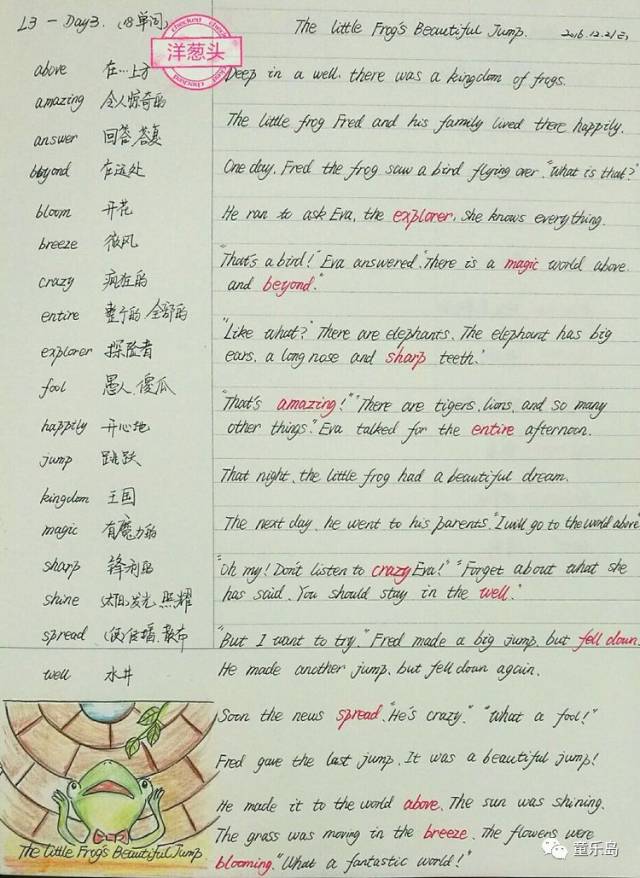 L3 - Day3. (18单词)
checked
洋葱头
checked
above 在…上方
amazing 令人惊奇的
answer 回答.答复
beyond 在远处
bloom 开花
breeze 微风
crazy 疯狂的
entire 整个的.全部的
explorer 探险者
fool 愚人.傻瓜
happily 开心地
jump 跳跃
kingdom 王国
magic 有魔力的
sharp 锋利的
shine (太阳)发光.照耀
spread (使)传播.散布
well 水井
The little Frog's Beautiful Jump
The little Frog's Beautiful Jump. 2016.12.21(三)
Deep in a well, there was a kingdom of frogs.
The little frog Fred and his family lived there happily.
One day, Fred the frog saw a bird flying over. "What is that?"
He ran to ask Eva, the explorer, she knows everything.
"That's a bird!" Eva answered. "There is a magic world above
and beyond."
"Like what?" There are elephants. The elephant has big
ears, a long nose and sharp teeth."
"That's amazing!" "There are tigers, lions, and so many
other things." Eva talked for the entire afternoon.
That night, the little frog had a beautiful dream.
The next day, he went to his parents. "I will go to the world above"
"Oh my! Don't listen to crazy Eva!" "Forget about what she
has said. You should stay in the well."
"But I want to try." Fred made a big jump, but fell down.
He made another jump, but fell down again.
Soon the news spread. "He's crazy." "What a fool!"
Fred gave the last jump. It was a beautiful jump!
He made it to the world above. The sun was shining.
The grass was moving in the breeze. The flowers were
blooming. "What a fantastic world!"
童乐岛